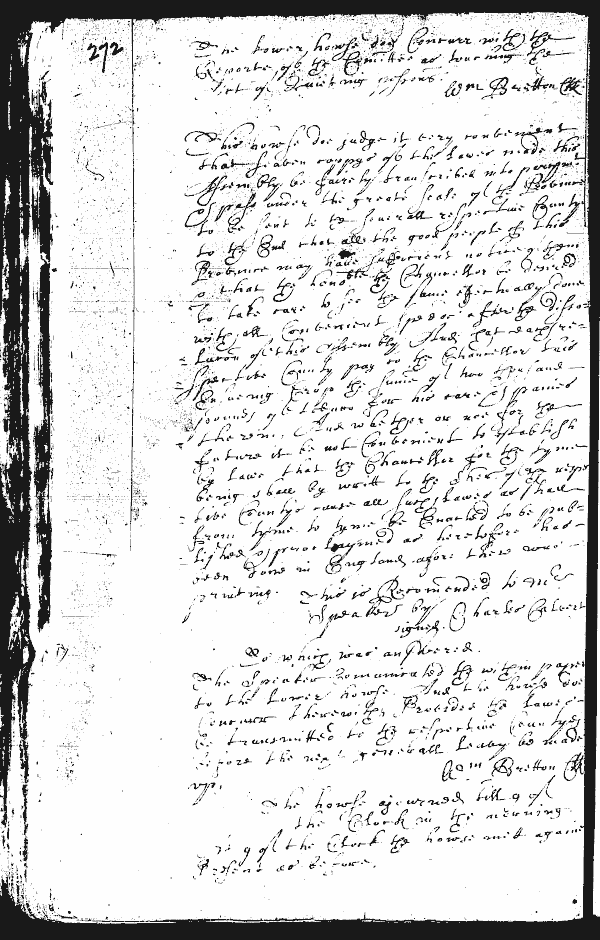 272
The Lower howse doe Concurr with the
Reporte of the Comittee as touching the
Act of Quieting possons
Wm Bretton Clk
This howse doe judge it very convenient
that seaven coppys of the Lawes made this
Assembly be fairely transcribed into parchmt
& passe under the greate Seale of the Province
to be sent to the severall respective Countys
to the End that all the good people of this
Province may have sufficient notice of them
& that the hono:ble the Chancellor be desired
To take care to see the same effectually done
with all Convenient speede after the disso-
lucon of this Assembly And that each re-
spective County pay to the Chancellor this
Ensueing Cropp the sume of two thousand
pounds of Tobacco for his care & paines
therein, And whether or noe for the
future it be not Convenient to Establish
by Lawe that the Chancellor for the tyme
being shall by writt to the Sher of the respec
tive Countys cause all such Lawes as shall
from tyme to tyme be Enacted to be pub-
lished & proclaymed as heretofore has
been done in England afore there was
printing. This is Recomended to Mr
Speaker by
signed Charles Calvert
To which was answered.
The Speaker Comunicated the within paper
to the Lower howse. And the howse doe
Concurr therewith Provided the Lawes
be transmitted to the respective Countyes
before the next generall Leavy be made
up.
Wm Bretton Clk
The howse ajourned till 9 of
the Clock in the morning
At 9 of the Clock the howse mett againe
Present as before.